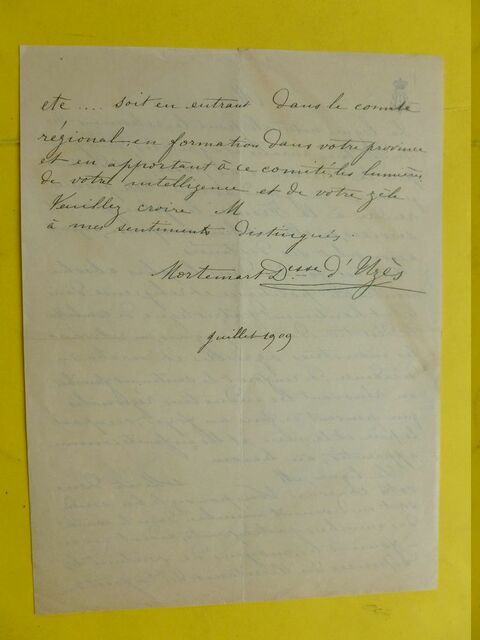 etc .... soit en entrant dans le comité
régional, en formation dans votre province
et en apportant à ce comité, les lumières
de votre intelligence et de votre zèle
Veuillez croire M
à mes sentiments distingués.
Mortemart Desse d'Uzès
Juillet 1909